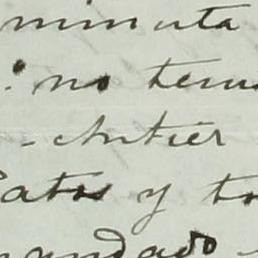 minuta
no tenu
-chutier
atos y to
andado